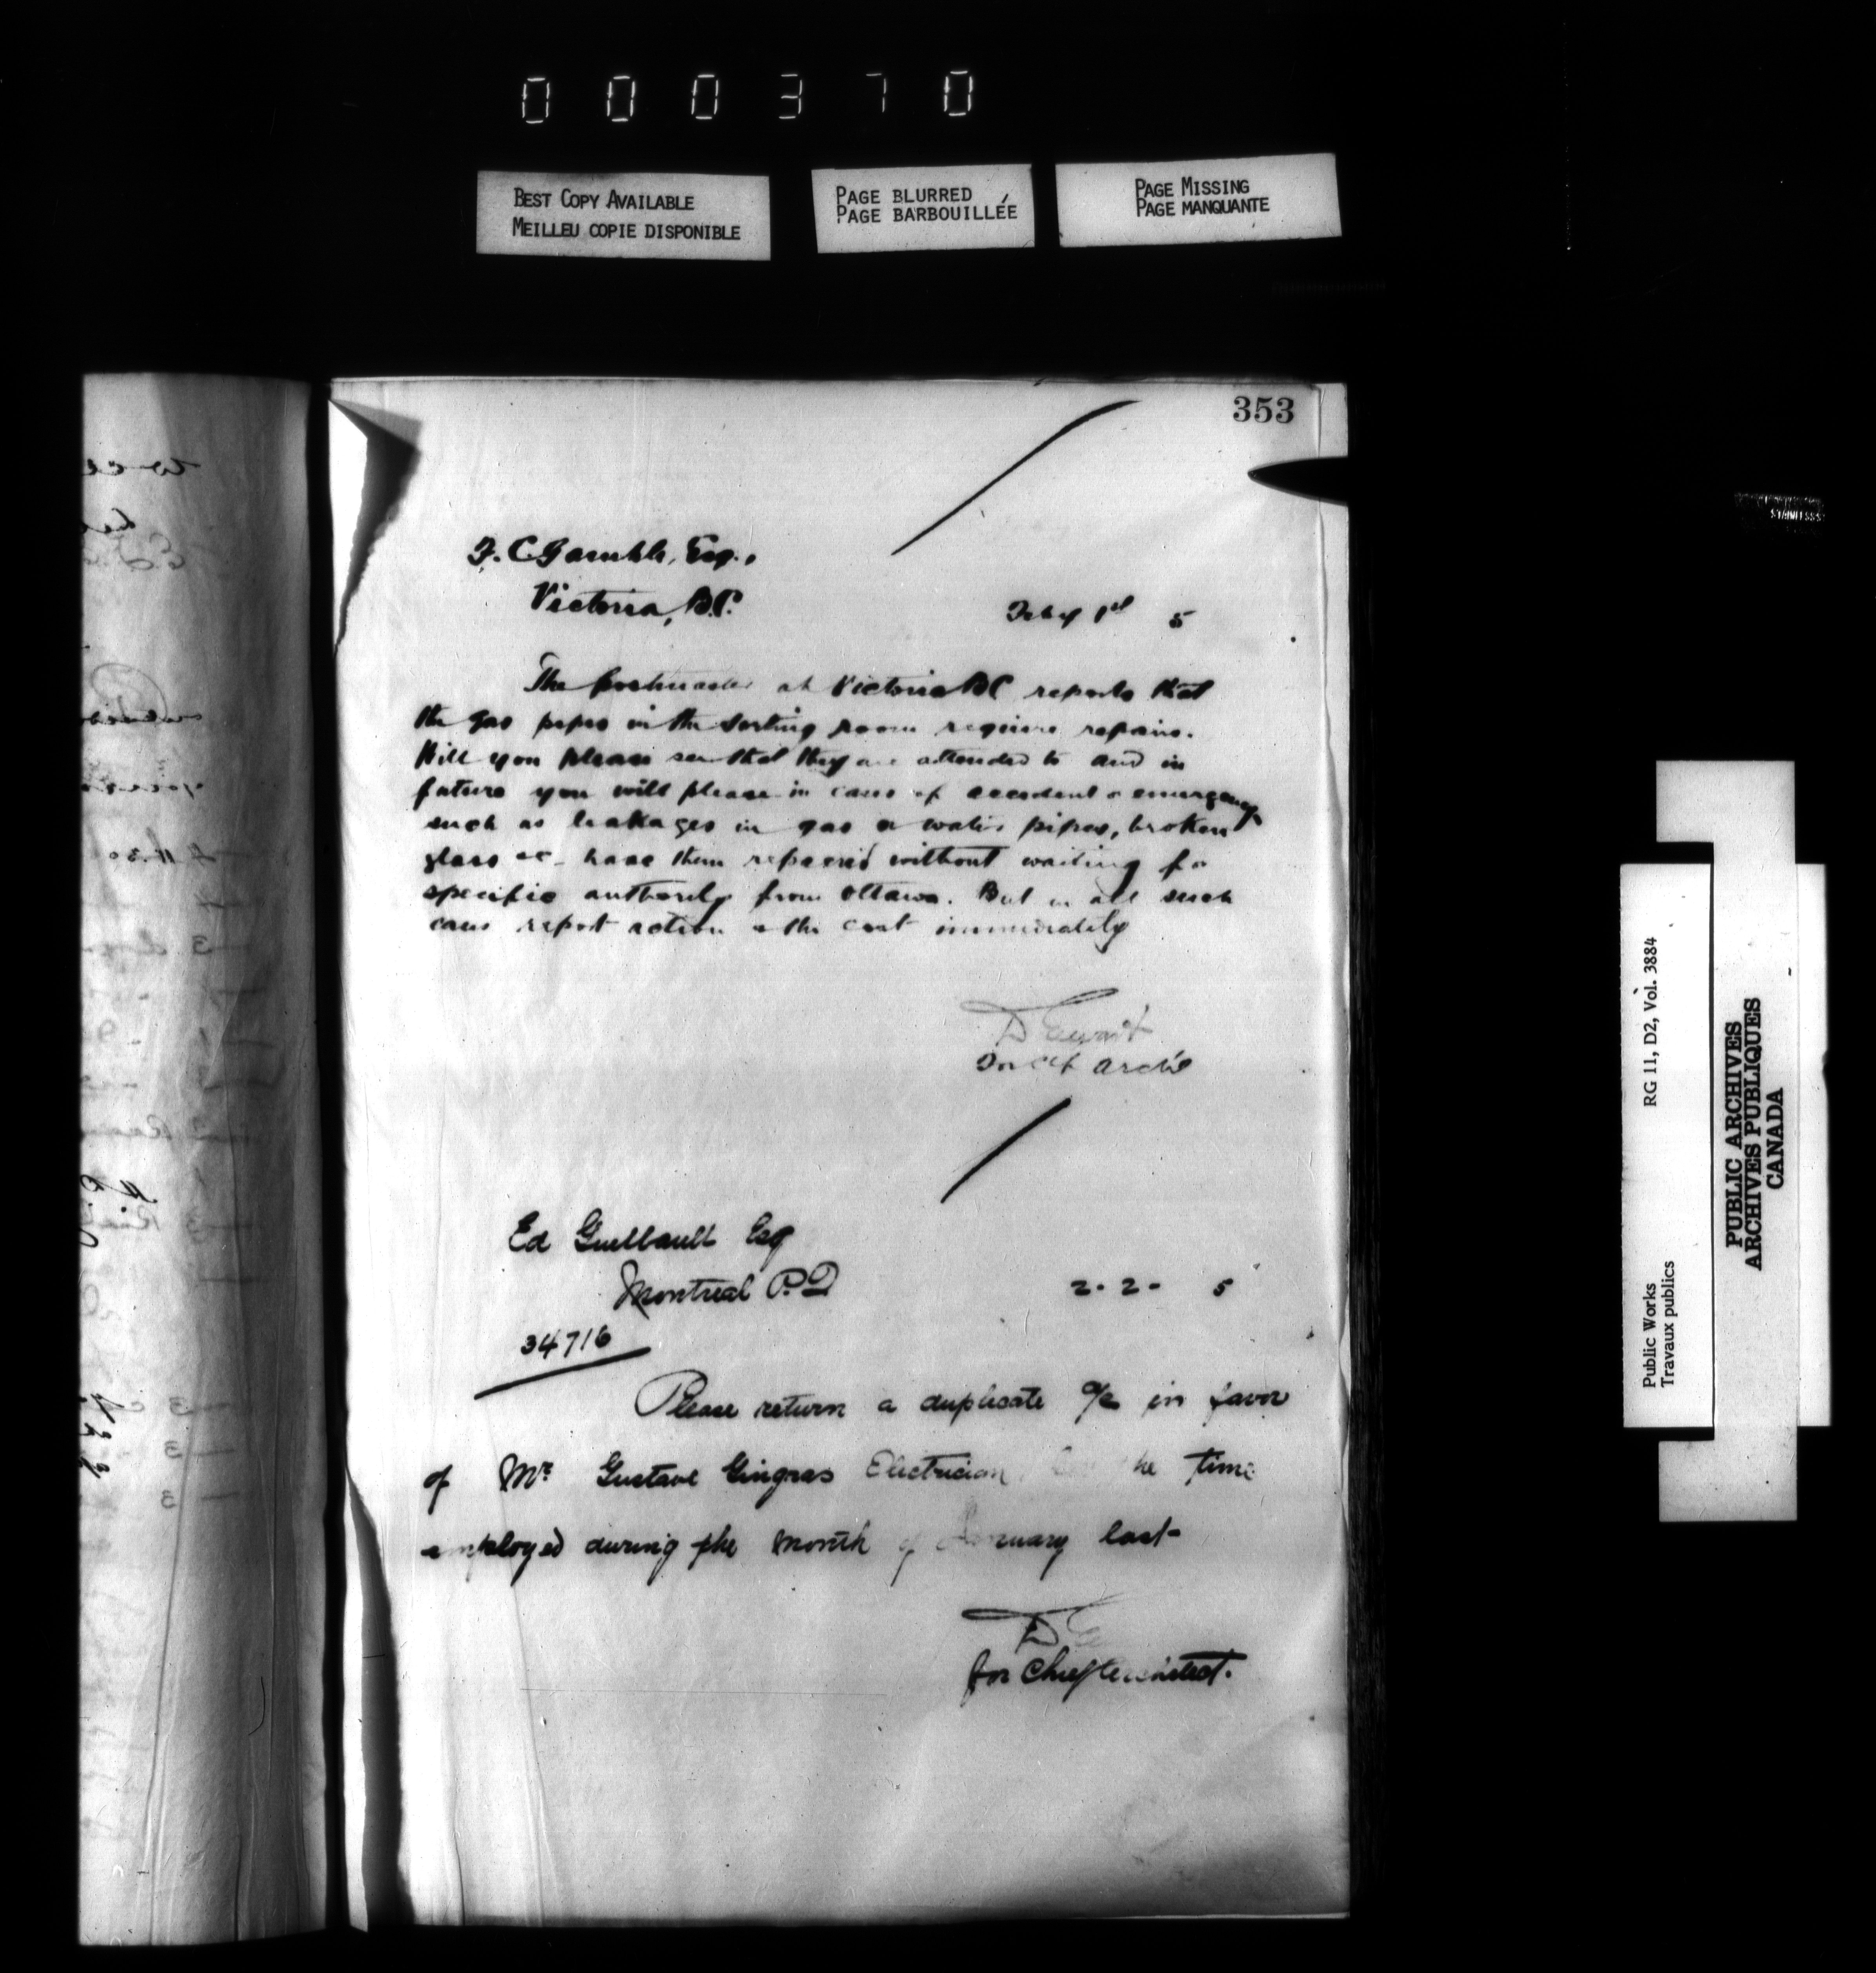 000370
BEST COPY AVAILABLE
MEILLEU COPIE DISPONIBLE
PAGE BLURRED
PAGE BARBOUILLÉE
PAGE MISSING
PAGE MANQUANTE
353
F. C. Gamble, Esq.,
Victoria, B.C.
Feby 1st 5
The Postmaster at Victoria BC reports that
the gas pipes in the Sorting room require repairs.
Will you please see that they are attended to and in
future you will please in cases of accident or emergency
such as leakages in gas or water pipes, broken
glass &c - have them repaired without waiting for
specific authority from Ottawa. But in all such
cases report action & the cost immediately
D Ewart
For Cf Archt
Ed Guilbault Esq
Montreal P.Q
2-2- 5
34716
Please return a duplicate a/c in favor
of Mr Gustave Gingras Electrician the time
employed during the month of January last
D E
for Chief Architect.
RG 11, D2, Vol. 3884
Public Works
Travaux publics
PUBLIC ARCHIVES
ARCHIVES PUBLIQUES
CANADA
STAINLESS